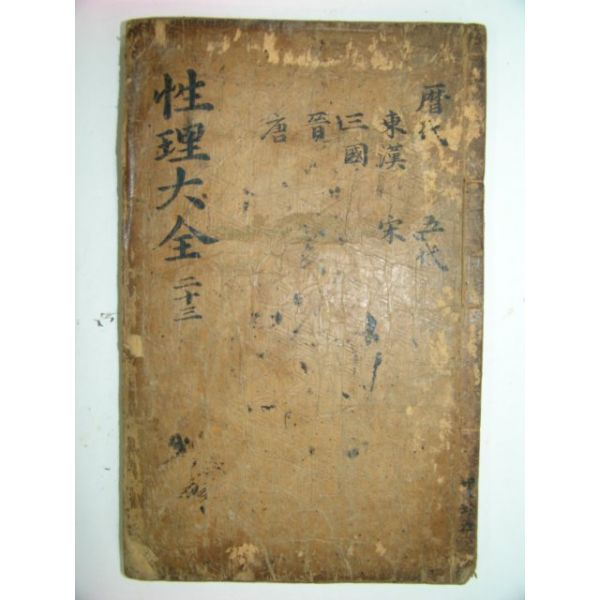 暦代 五代
東漢 宋
三國
晉
唐
性理大全 二十三